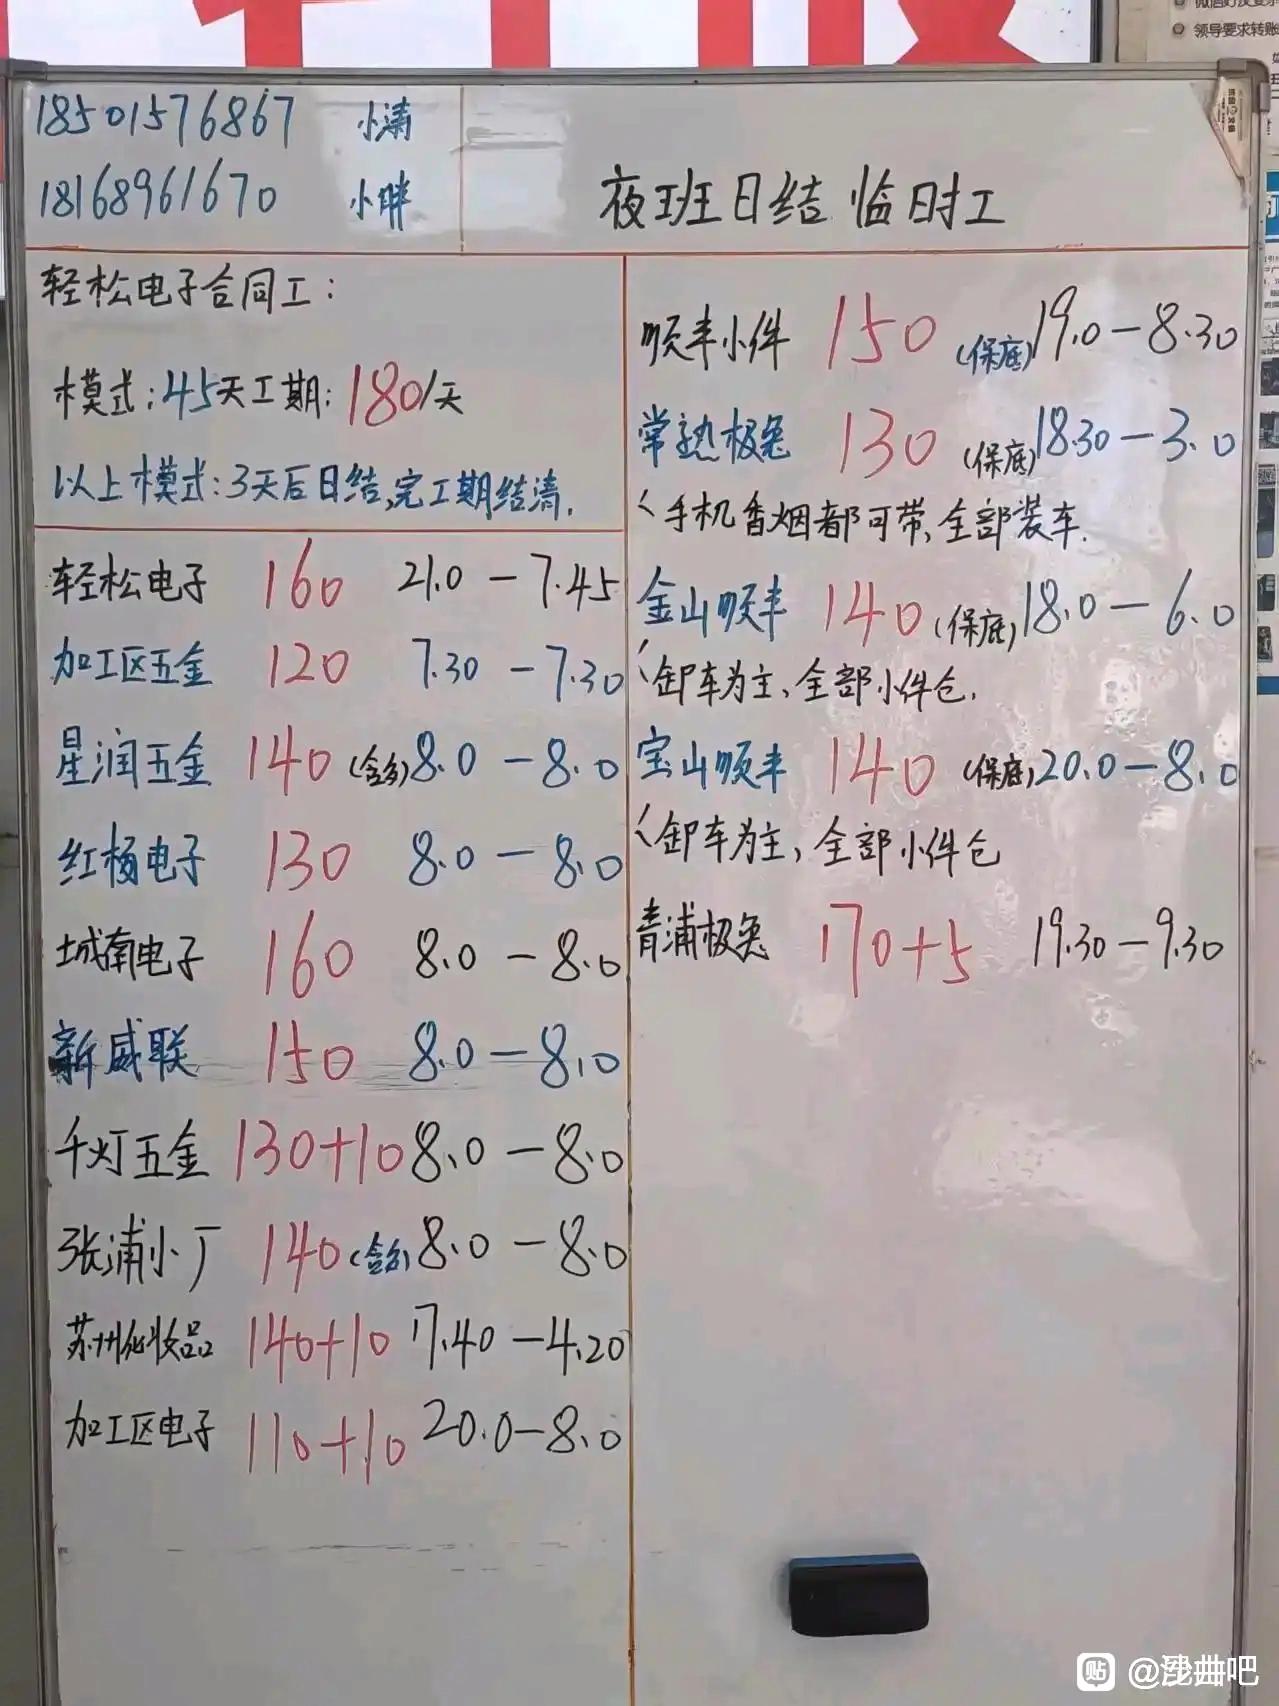 领导要求转账
18501576867 小涛
18168961670 小胖
夜班日结 临时工
轻松电子合同工:
模式:45天工期:180/天
以上模式:3天后日结,完工期结清.
轻松电子 160 21.0-7.45
加工区五金 120 7.30-7.30
星润五金 140 8.0-8.0
红杨电子 130 8.0-8.0
城南电子 160 8.0-8.0
新威联 150 8.0-8.0
千灯五金 130+10 8.0-8.0
张浦小厂 140 8.0-8.0
苏州化妆品 140+10 17.40-4.20
加工区电子 110+10 20.0-8.0
顺丰小件 150 (保底) 19.0-8.30
常熟极兔 130 (保底) 18.30-3.0
手机香烟都可带、全部装车.
金山顺丰 140 (保底) 18.0-6.0
卸车为主、全部小件仓.
宝山顺丰 140 (保底) 20.0-8.0
卸车为主,全部小件仓
青浦极兔 170+5 19.30-9.30
贴